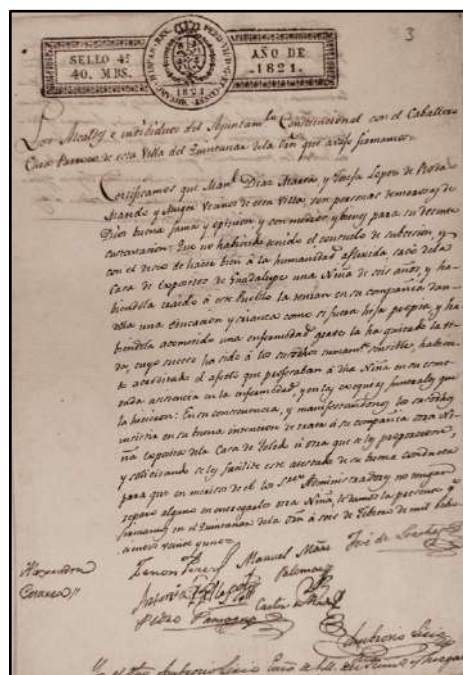 3
SELLO 4º
40. MRS.
AÑO DE
1821.
1821
Los Alcaldes e individuos del Ayuntam.to Constitucional con el Caballero
Cura Parroco de esta Villa del Quintanar dela Orn. que abajo firmamos
Certificamos que Man.l Diaz y Josefa Lopez de
Marido y Muger Vecinos de esta Villa, son personas temerosas de
Dios buena fama y opinion y con medios y bienes para su decente
sustentacion: Que no habiendo tenido el consuelo de subcesion, y
con el deseo de hacer bien á la humanidad afligida, sacó dela
Casa de Expositos de Guadalupe una Niña de seis años, y ha-
biendola traido á este Pueblo la tenian en su compañia dan-
dola una educacion y crianza como si fuera hija propia, y ha-
biendola acometido una enfermedad grave la ha quitado la vi-
da, cuyo suceso ha sido á los susodhos sumam.te sensible, habien-
do acreditado el afecto que profesaban á dha Niña en su esme-
rada asistencia en la enfermedad, y en las exequias funerales que
la hicieron: En su consecuencia, y manifestandonos los susodhos
insistir en su buena intencion de traer á su compañia otra Ni-
ña Exposita dela Casa de Toledo ú otra que se les proporcione,
y solicitando se les facilite este atestado de su buena conducta
para que en meritos de el los S.res Administradores no tengan
reparo alguno en entregarles otra Niña, le damos la presente y
firmamos en el Quintanar dela Orn á seis de Febrero de mil ocho-
cientos veinte y uno
Alexandro
Zenon Perez
Manuel Mãs
José de
Antonio
Palomar
Pedro
Castor
Ambrosio
Ambrosio